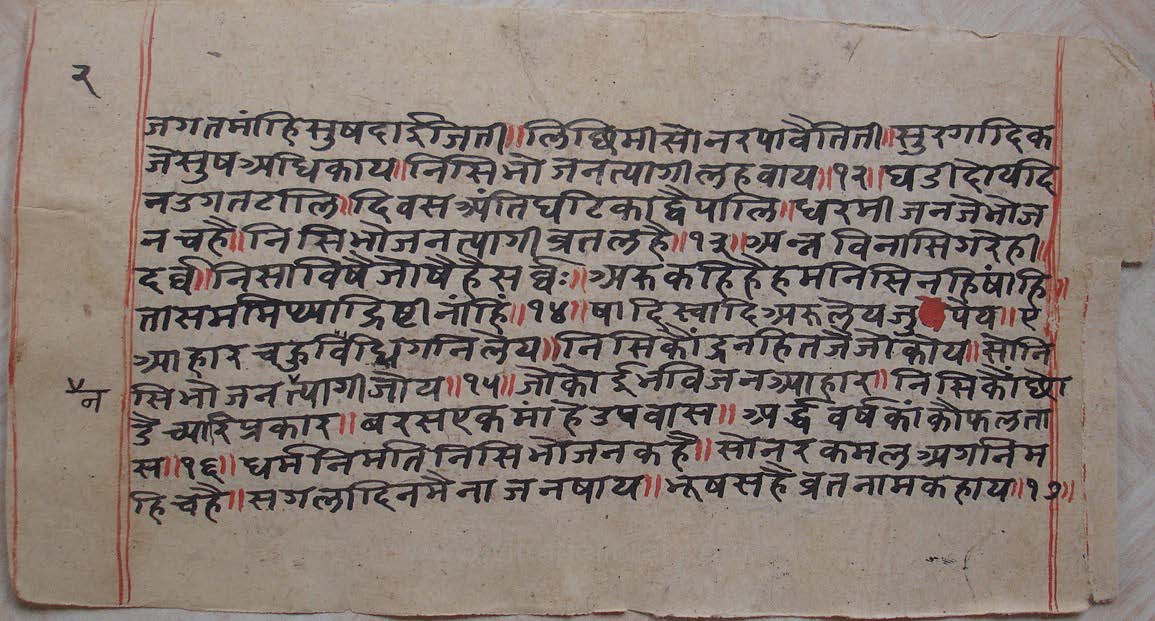 २
जगतमांहिसुषदाईजिती॥लिछिमीसोनरपावैतिती॥सुरगादिक
जेसुषअधिकाय॥निसिभोजनत्यागीलहवाय॥१२॥घडीदोयदि
नउगतटालि॥दिवसअंतिघटिकाद्वैपालि॥धरमीजनजेभोज
नचहै॥निसिभोजनत्यागीव्रतलहै॥१३॥अन्नविनासिगरेही॥
दर्व्व॥निसाविषैजोषैहैसर्व्वः॥अरुकहिहैहमनिसिनहिंषांहि॥
तासममिथ्याद्रिष्टीनांहिं॥१४॥षादिस्वादिअरुलेयजुपेय॥ए
आहारचहुविंधिगनिलेय॥निसिकोंद्रनहितजैजोकोय॥सोनि
सिभोजनत्यागीजोय॥१५॥जोकोईभविजनआहार॥निसिकोंछो
न
डैच्यारिप्रकार॥बरसएकमांहेउपवास॥अर्द्धवर्षकांकोफलता
स॥१६॥धर्मनिमतिनिसिभोजनकहै॥सोनरकमलअगनिम
हिचहै॥सगलादिनमैनाजनषाय॥भूषसहैव्रतनामकहाय॥१७॥